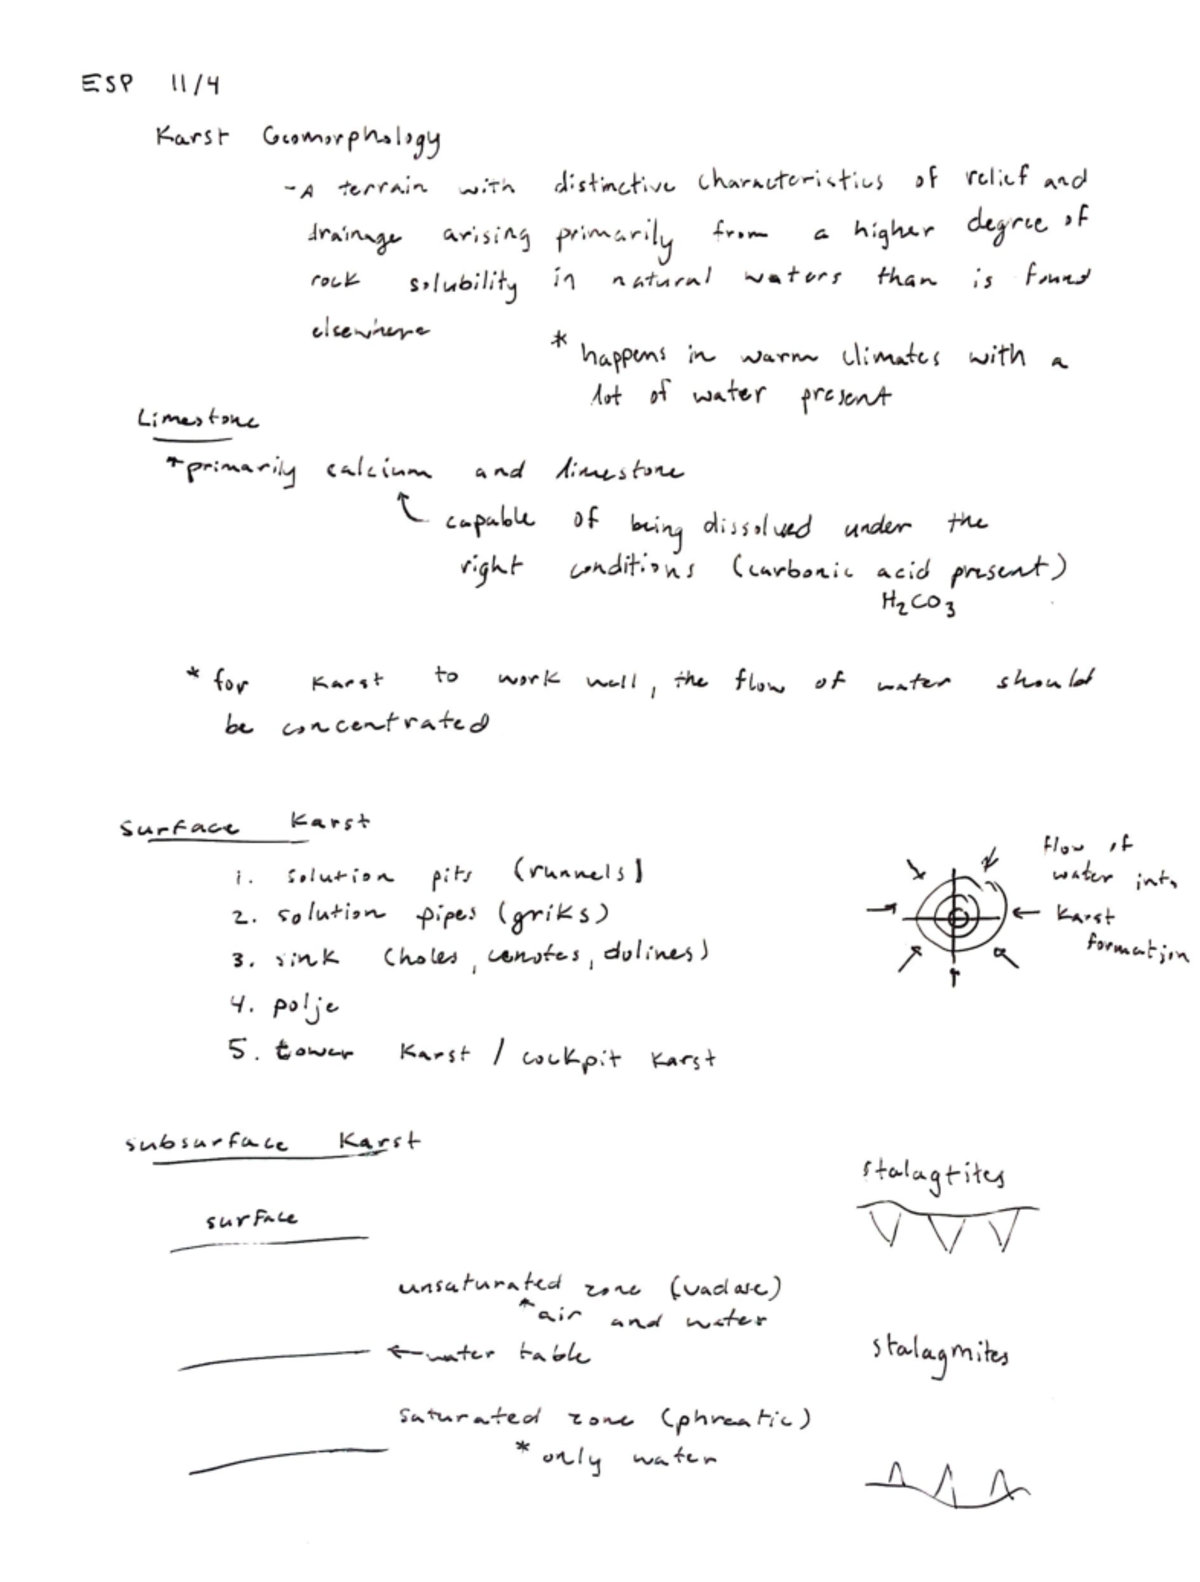 ESP 11/4
Karst Geomorphology
- A terrain with distinctive characteristics of relief and
drainage arising primarily from a higher degree of
rock solubility in natural waters than is found
elsewhere
* happens in warm climates with a
lot of water present
Limestone
* primarily calcium and limestone
capable of being dissolved under the
right conditions (carbonic acid present)
H2CO3
* for Karst to work well, the flow of water should
be concentrated
Surface Karst
1. solution pits (runnels)
2. solution pipes (griks)
3. sink (holes, cenotes, dolines)
4. polje
5. tower Karst / cockpit Karst
flow of
water into
Karst
formation
subsurface Karst
surface
unsaturated zone (vadose)
* air and water
← water table
saturated zone (phreatic)
* only water
stalagtites
stalagmites